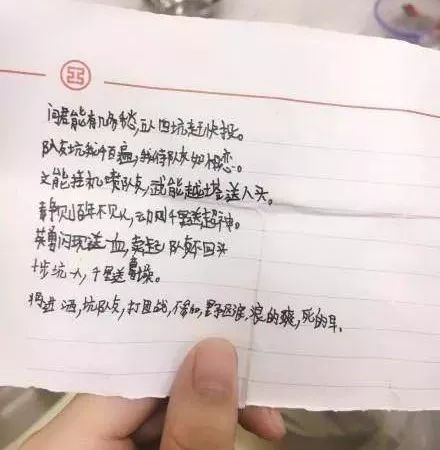 问君能有几多愁,五人四坑赶快投。
队友坑我千百遍,我待队友如初恋。
文能挂机喷队友,武能越塔送人头。
静则百年不见人,动则千里送超神。
英勇闪现送一血,卖起队友不回头
十步坑一人,千里送貂蝉。
将进酒,坑队友,打团战,不参加,野区浪,浪的爽,死的早。